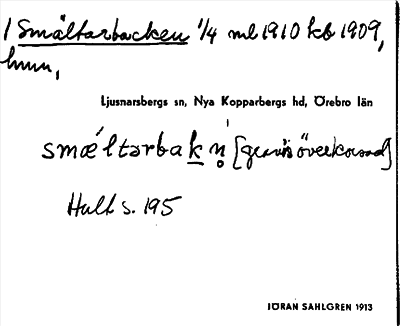 1 Smältarbacken 1/4 ml 1910 kb 1909,
hmn,
Ljusnarsbergs sn, Nya Kopparbergs hd, Örebro län
smæ´ltərbakṇ̀ [gravis överkorsad]
Hult s. 195
JÖRAN SAHLGREN 1913